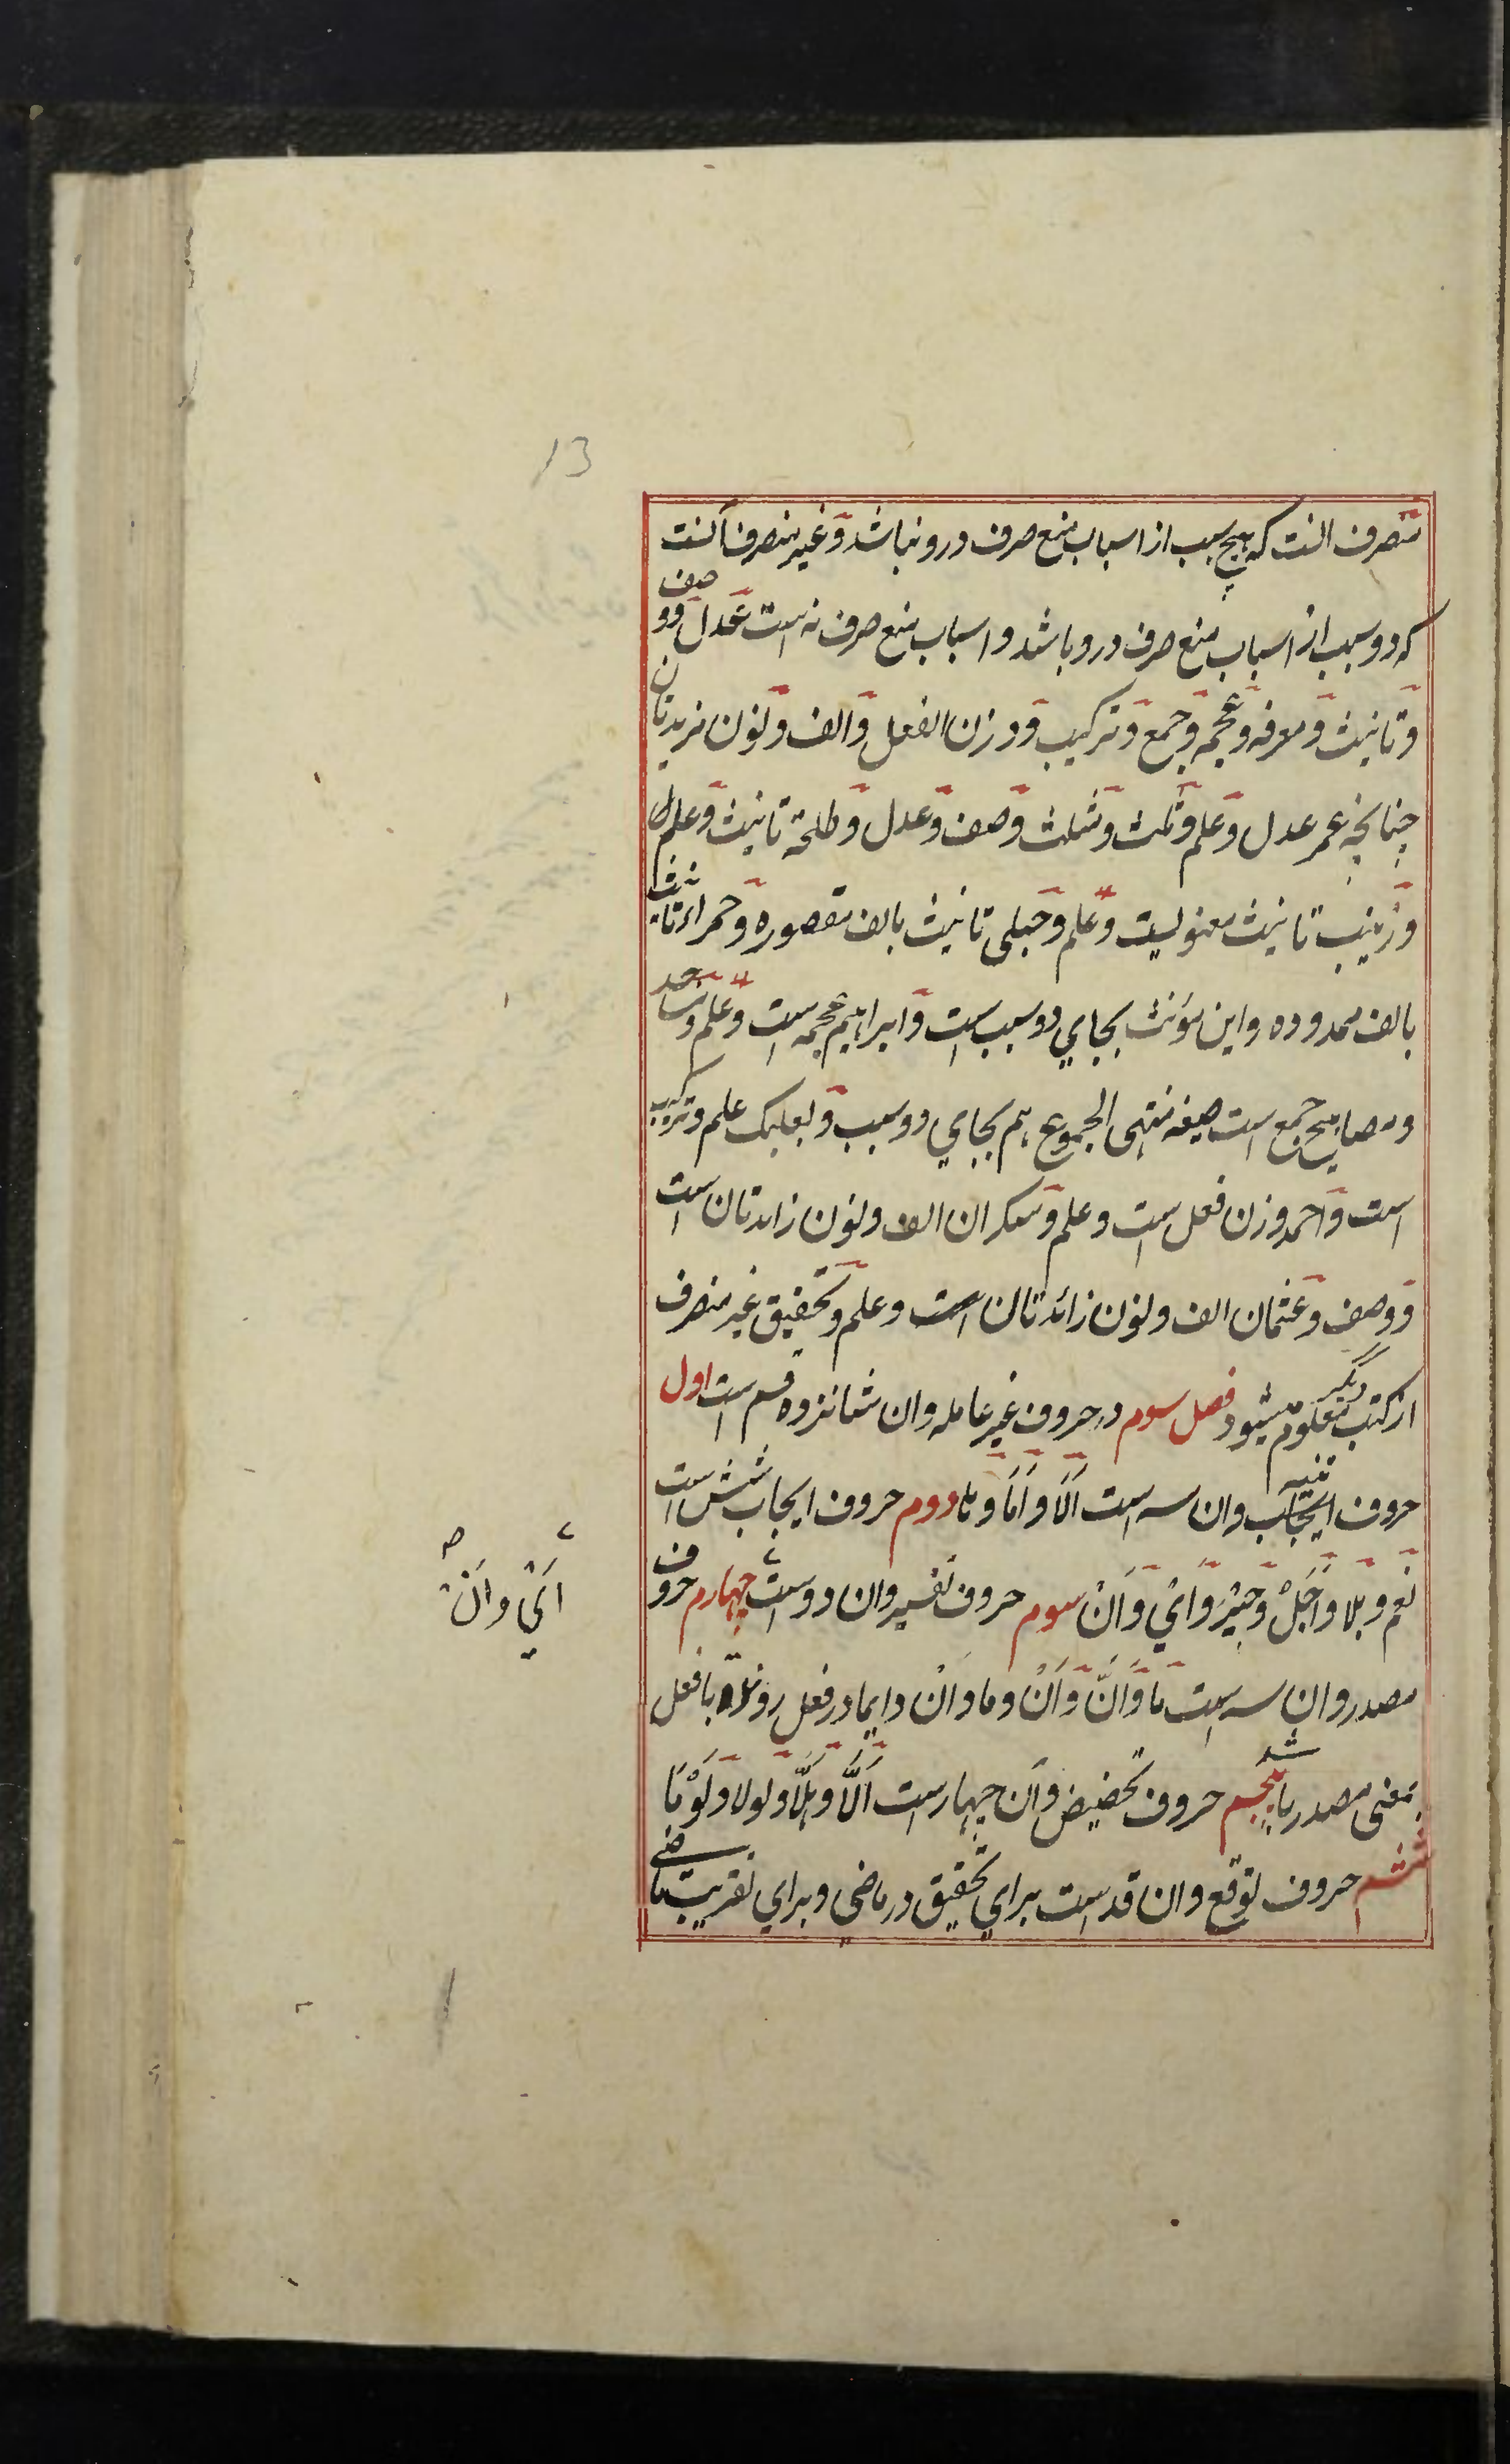 13
منصرف انست که هیچ سبب از اسباب منع صرف درو نباشد و غیر منصرف آنست
که دو سبب از اسباب منع صرف درو باشد و اسباب منع صرف نه است عدل و وصف
و تانیث و معرفه و عجمه و جمع و ترکیب و وزن الفعل و الف و نون مزیدتان
چنانچه عمر عدل و علم و ثلث و مثلث وصف و عدل و طلحة تانیث و علم
و زینب تانیث معنویست و علم و حبلی تانیث بالف مقصوره و حمراء تانیث
بالف ممدوده و این مؤنث بجای دو سبب است و ابراهیم عجمه است و علم و مساجد
و مصابیح جمع است صیغه منتهی الجموع هم بجای دو سبب و بعلبک علم و ترکیب
است و احمد وزن فعل است و علم و سکران الف و نون زایدتان است
و وصف و عثمان الف و نون زائدتان است و علم و تحقیق غیر منصرف
از کتب دیگر معلوم میشود فصل سوم در حروف غیر عامله وان شانزده قسم است اول
حروف تنبیه وان سه است اَلَا و اَمَا و ها دوم حروف ایجاب شش است
نعم و بلا و اَجَلْ و جَیْرِ و اِیْ و اَنْ سوم حروف تفسیر وان دو است چهارم حروف
اَیْ و اَنْ صح
مصدر وان سه است ما و اَنَّ و اَنْ و ما و اَنْ دایما در فعل روند با فعل
بمعنی مصدر باشد پنجم حروف تحضیض و آن چهار است اَلَّا و هَلَّا و لولا و لَوْمَا
ششم حروف توقع وان قد است برای تحقیق در ماضی و برای تقریب ماضی